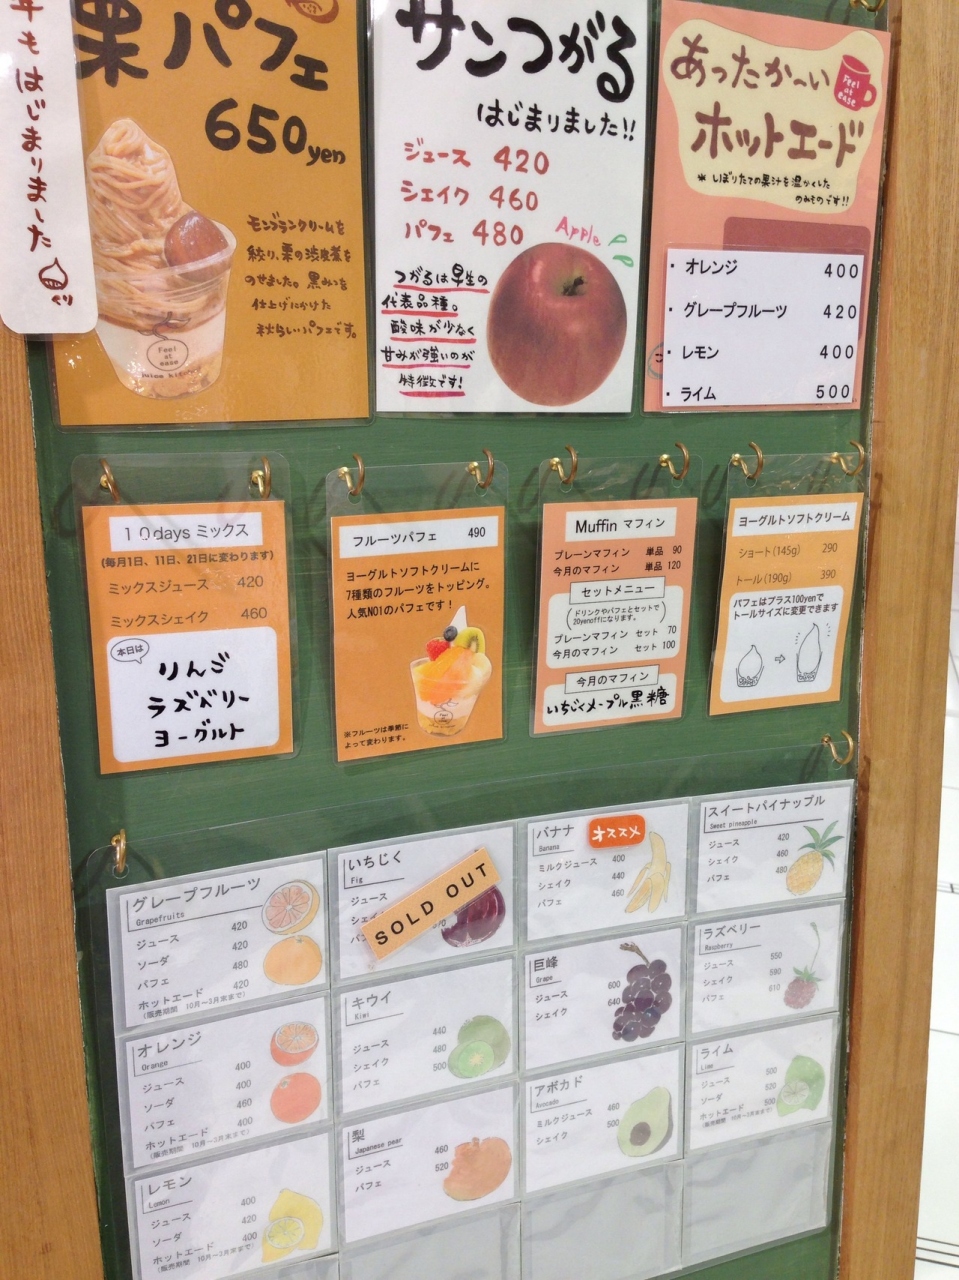 年もはじまりました
くり
栗パフェ
650yen
モンブランクリームを
絞り、栗の渋皮煮を
のせました。黒みつを
仕上げにかけた
秋らしいパフェです。
Feel
at
ease
juice kitchen
サンつがる
はじまりました!!
ジュース 420
シェイク 460
パフェ 480
Apple
つがるは早生の
代表品種。
酸味が少なく
甘みが強いのが
特徴です!
あったか〜い
Feel
at
ease
ホットエード
* しぼりたての果汁を温かくした
のみものです!!
・ オレンジ 400
・ グレープフルーツ 420
・ レモン 400
・ ライム 500
10days ミックス
(毎月1日、11日、21日に変わります)
ミックスジュース 420
ミックスシェイク 460
本日は
りんご
ラズベリー
ヨーグルト
フルーツパフェ 490
ヨーグルトソフトクリームに
7種類のフルーツをトッピング。
人気NO1のパフェです!
※フルーツは季節に
よって変わります。
Muffin マフィン
プレーンマフィン 単品 90
今月のマフィン 単品 120
セットメニュー
(ドリンクやパフェとセットで
20yenoffになります。)
プレーンマフィン セット 70
今月のマフィン セット 100
今月のマフィン
いちじくメープル黒糖
ヨーグルトソフトクリーム
ショート(145g) 290
トール(190g) 390
パフェはプラス100yenで
トールサイズに変更できます
グレープフルーツ
Grapefruits
ジュース 420
ソーダ 420
パフェ 480
ホットエード 420
(販売期間 10月〜3月末まで)
いちじく
Fig
ジュース
シェイ
SOLD OUT
バナナ
Banana
オススメ
ミルクジュース 400
シェイク 440
パフェ 460
スイートパイナップル
Sweet pineapple
ジュース 420
シェイク 460
パフェ 480
オレンジ
Orange
ジュース 400
ソーダ 400
パフェ 460
ホットエード 400
(販売期間 10月〜3月末まで)
キウイ
Kiwi
ジュース 440
シェイク 480
パフェ 500
巨峰
Grape
ジュース 600
シェイク 640
ラズベリー
Raspberry
ジュース 550
シェイク 590
パフェ 610
レモン
Lemon
ジュース 400
ソーダ 420
ホットエード 400
(販売期間 10月〜3月末まで)
梨
Japanese pear
ジュース 460
パフェ 520
アボカド
Avocado
ミルクジュース 460
シェイク 500
ライム
Lime
ジュース 500
ソーダ 520
ホットエード 500
(販売期間 10月〜3月末まで)